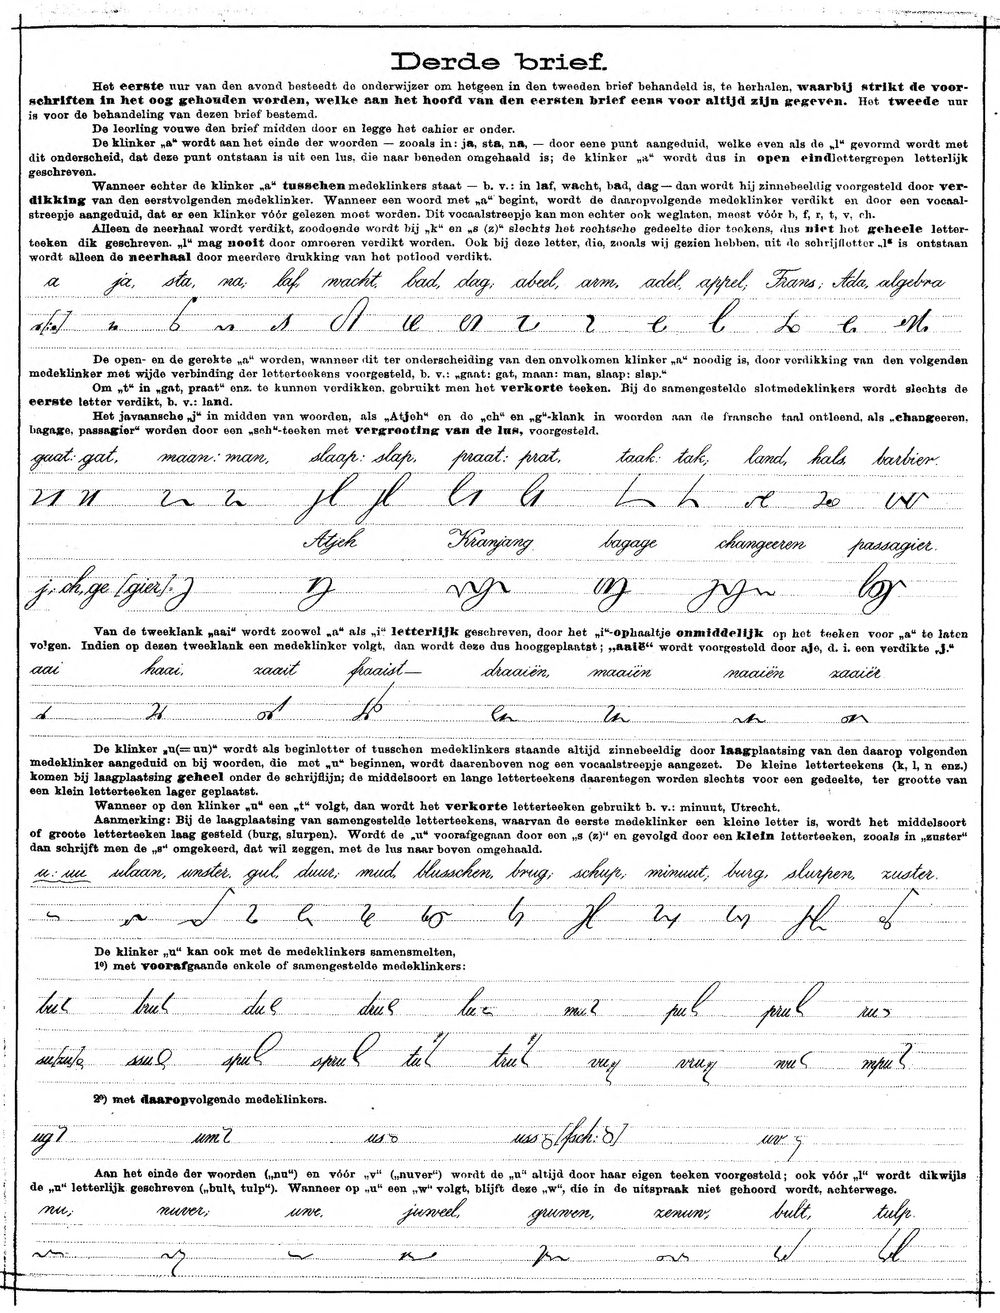 Derde brief.
Het eerste uur van den avond besteedt de onderwijzer om hetgeen in den tweeden brief behandeld is, te herhalen, waarbij strikt de voor-
schriften in het oog gehouden worden, welke aan het hoofd van den eersten brief eens voor altijd zijn gegeven. Het tweede uur
is voor de behandeling van dezen brief bestemd.
De leerling vouwe den brief midden door en legge het cahier er onder.
De klinker „a" wordt aan het einde der woorden — zooals in: ja, sta, na, — door eene punt aangeduid, welke even als de „l" gevormd wordt met
dit onderscheid, dat deze punt ontstaan is uit een lus, die naar beneden omgehaald is; de klinker „a" wordt dus in open eindlettergrepen letterlijk
geschreven.
Wanneer echter de klinker „a" tusschen medeklinkers staat — b. v.: in laf, wacht, bad, dag — dan wordt hij zinnebeeldig voorgesteld door ver-
dikking van den eerstvolgenden medeklinker. Wanneer een woord met „a" begint, wordt de daaropvolgende medeklinker verdikt en door een vocaal-
streepje aangeduid, dat er een klinker vóór gelezen moet worden. Dit vocaalstreepje kan men echter ook weglaten, meest vóór b, f, r, t, v, ch.
Alleen de neerhaal wordt verdikt, zoodoende wordt bij „k" en „s (z)" slechts het rechtsche gedeelte dier teekens, dus niet het geheele letter-
teeken dik geschreven. „l" mag nooit door omroeren verdikt worden. Ook bij deze letter, die, zooals wij gezien hebben, uit de schrijfletter „l" is ontstaan
wordt alleen de neerhaal door meerdere drukking van het potlood verdikt.
a ja, sta, na, laf, wacht, bad, dag, abeel, arm, adel, appel, Frans, Ada, algebra
De open- en de gerekte „a" worden, wanneer dit ter onderscheiding van den onvolkomen klinker „a" noodig is, door verdikking van den volgenden
medeklinker met wijde verbinding der letterteekens voorgesteld, b. v.: „gaat: gat, maan: man, slaap: slap."
Om „t" in „gat, praat" enz. te kunnen verdikken, gebruikt men het verkorte teeken. Bij de samengestelde slotmedeklinkers wordt slechts de
eerste letter verdikt, b. v.: land.
Het javaansche „j" in midden van woorden, als „Atjeh" en de „ch" en „g"-klank in woorden aan de fransche taal ontleend, als „changeeren,
bagage, passagier" worden door een „sch"-teeken met vergrooting van de lus, voorgesteld.
gaat: gat, maan: man, slaap: slap, praat: prat, taak: tak, land, hals, barbier.
Atjeh Kranjang bagage changeeren passagier.
j, ch, ge [gier]:
Van de tweeklank „aai" wordt zoowel „a" als „i" letterlijk geschreven, door het „i"-ophaaltje onmiddelijk op het teeken voor „a" te laten
volgen. Indien op dezen tweeklank een medeklinker volgt, dan wordt deze dus hooggeplaatst; „aaië" wordt voorgesteld door aje, d. i. een verdikte „j."
aai haai, zaait fraaist— draaiën, maaiën naaiën zaaiër
De klinker „u(=uu)" wordt als beginletter of tusschen medeklinkers staande altijd zinnebeeldig door laagplaatsing van den daarop volgenden
medeklinker aangeduid en bij woorden, die met „u" beginnen, wordt daarenboven nog een vocaalstreepje aangezet. De kleine letterteekens (k, l, n enz.)
komen bij laagplaatsing geheel onder de schrijflijn; de middelsoort en lange letterteekens daarentegen worden slechts voor een gedeelte, ter grootte van
een klein letterteeken lager geplaatst.
Wanneer op den klinker „u" een „t" volgt, dan wordt het verkorte letterteeken gebruikt b. v.: minuut, Utrecht.
Aanmerking: Bij de laagplaatsing van samengestelde letterteekens, waarvan de eerste medeklinker een kleine letter is, wordt het middelsoort
of groote letterteeken laag gesteld (burg, slurpen). Wordt de „u" voorafgegaan door een „s (z)" en gevolgd door een klein letterteeken, zooals in „zuster"
dan schrijft men de „s" omgekeerd, dat wil zeggen, met de lus naar boven omgehaald.
u: uu ulaan, unster, gul, duur, mud, blusschen, brug, schup, minuut, burg, slurpen, zuster.
De klinker „u" kan ook met de medeklinkers samensmelten,
1º) met voorafgaande enkele of samengestelde medeklinkers:
bu bru du dru lu mu pu pru ru
su[zu] ssu spu spru tu tru vu vru wu mpu
2º) met daaropvolgende medeklinkers.
ug um us uss [sch: ] uv
Aan het einde der woorden („nu") en vóór „v" („nuver") wordt de „u" altijd door haar eigen teeken voorgesteld; ook vóór „l" wordt dikwijls
de „u" letterlijk geschreven („bult, tulp"). Wanneer op „u" een „w" volgt, blijft deze „w", die in de uitspraak niet gehoord wordt, achterwege.
nu, nuver, uwe, juweel, gruwen, zenuw, bult, tulp.